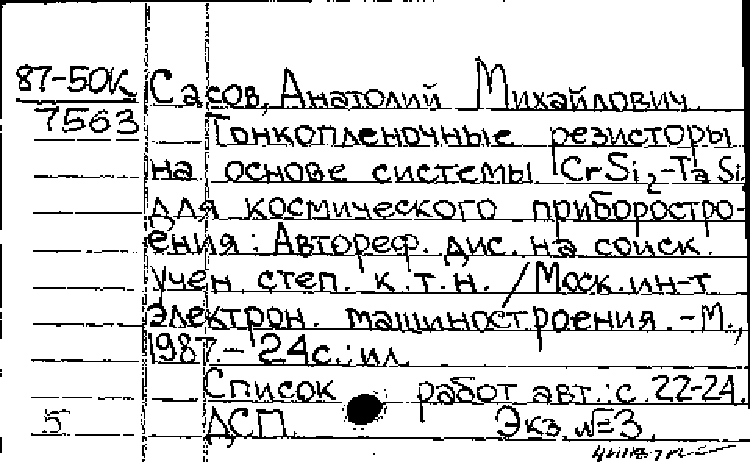 87-50К Сасов, Анатолий Михайлович.
7563 Тонкопленочные резисторы
на основе системы CrSi2-TaSi
для космического приборостро-
ения : Автореф. дис. на соиск.
учен. степ. к.т.н. / Моск. ин-т
электрон. машиностроения. - М.,
1987. - 24 с. : ил
Список работ авт. : с. 22-24.
5 ДСП. Экз. №3.